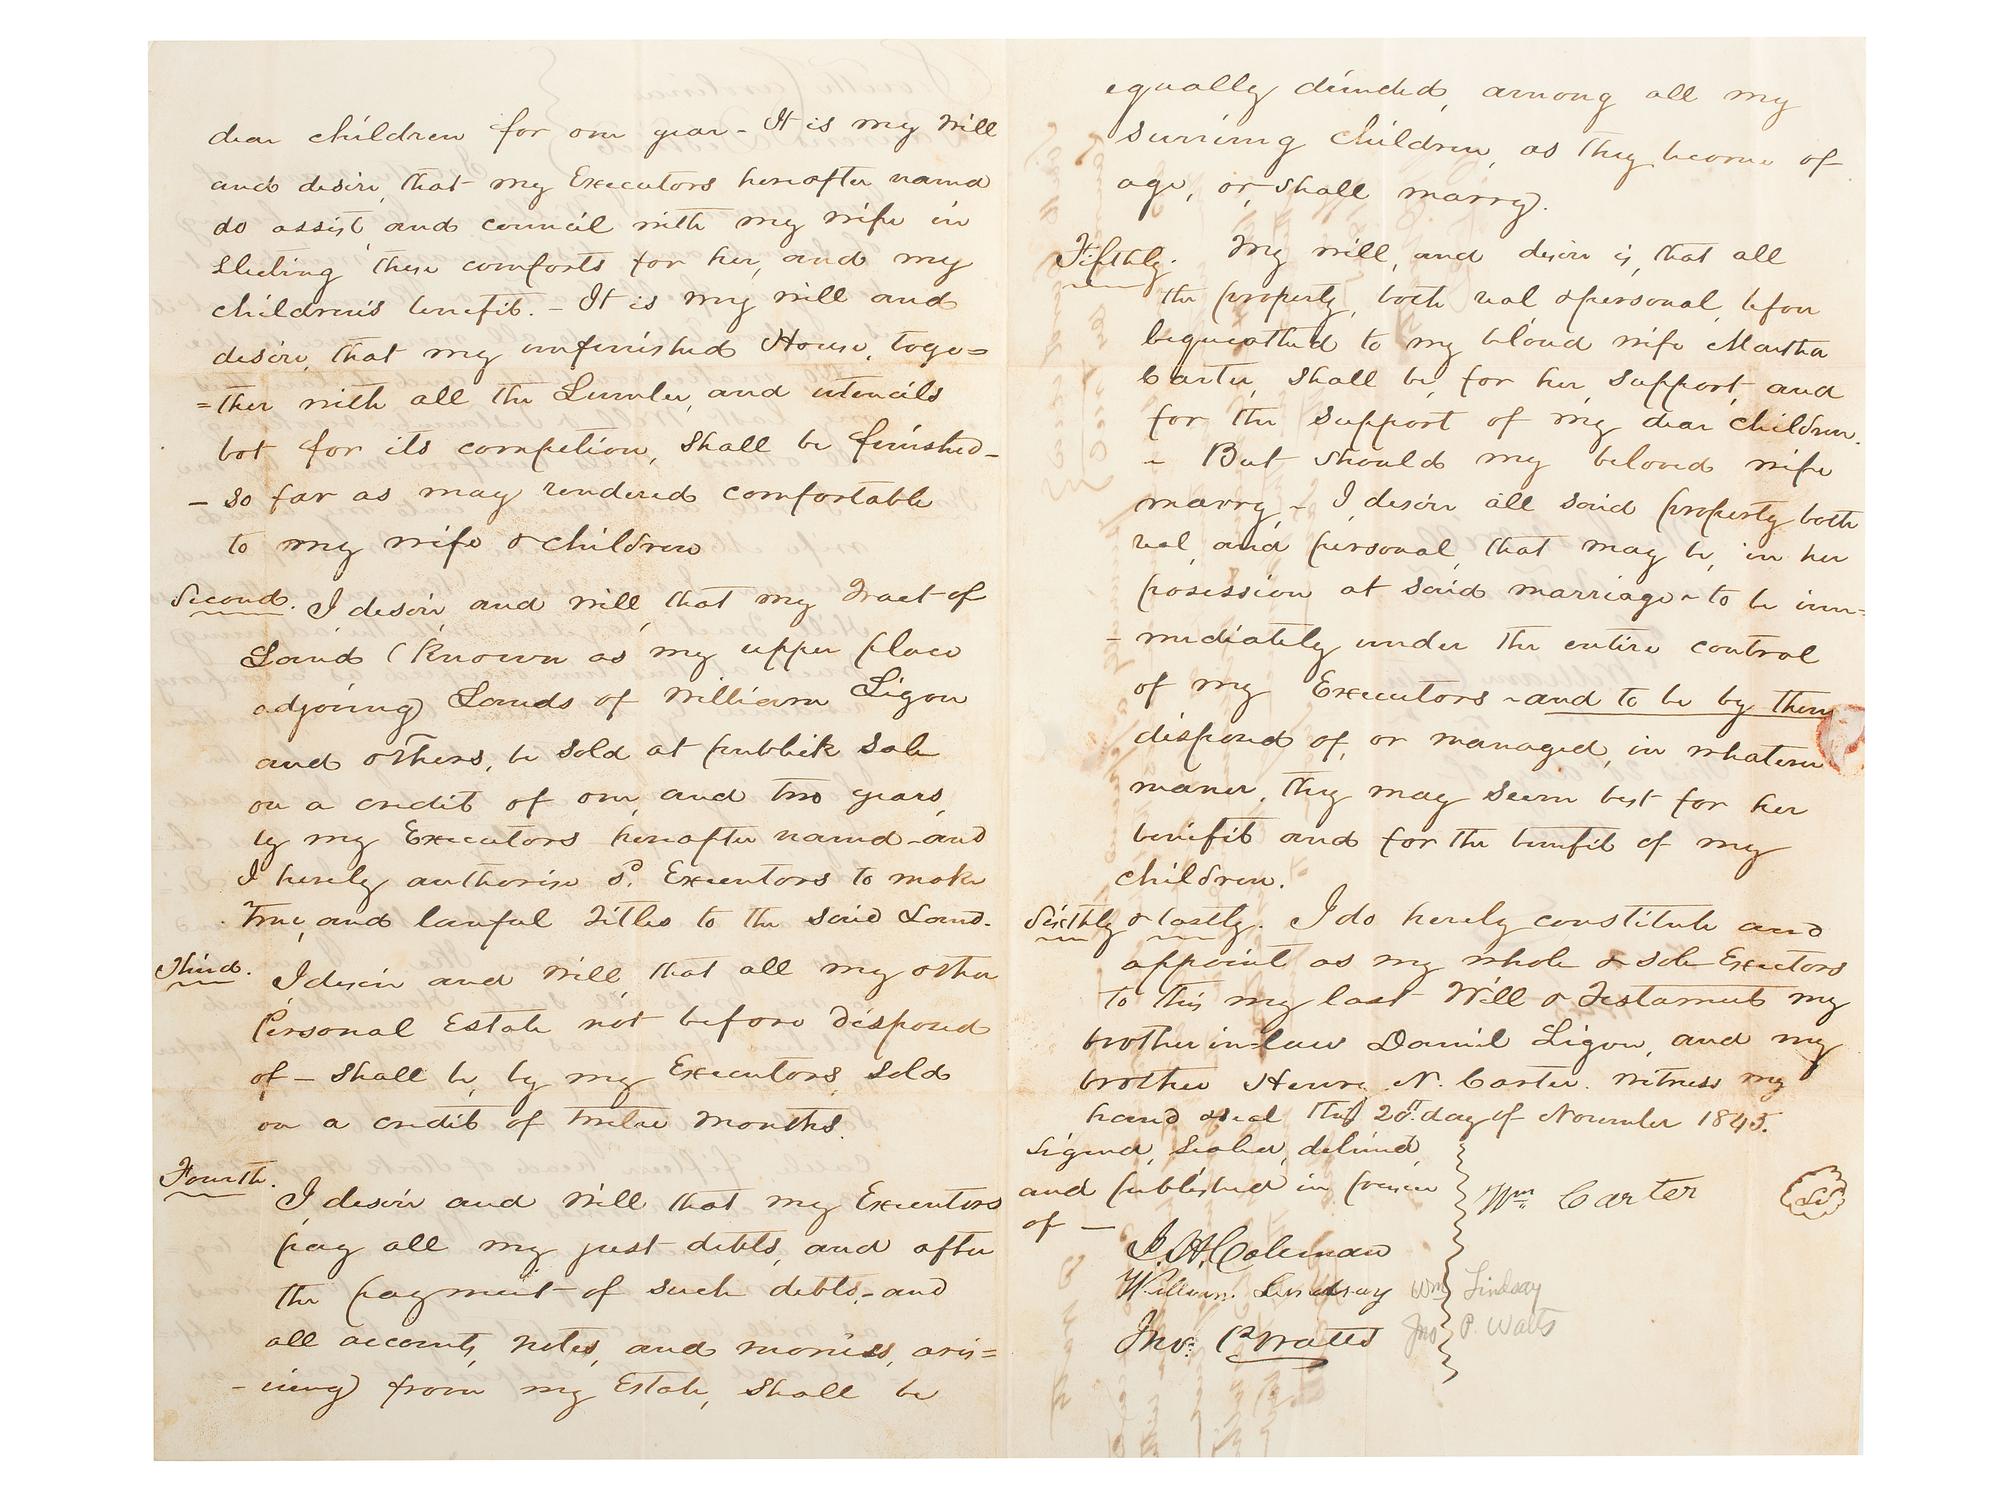 dear children for one year - It is my will
and desire, that my Executors hereafter named
do assist, and council with my wife in
these comforts for her, and my
children's benefit. - It is my will and
desire, that my unfinished House, toge=
=ther with all the Lumber, and utencils
bot for its competion, shall be finished -
- so far as may rendered comfortable
to my wife & children
Second. I desire, and will, that my Tract of
Land (Known as my upper place
adjoining) Lands of William Ligon
and others, be sold at publik sale
on a credit of one, and two years,
by my Executors hereafter named - and
I hereby authorise sd. Executors to make
true, and lawful Titles to the said Land.
Third. I desire and will, that all my other
Personal Estate not before disposed
of - shall be, by my Executors, sold
on a credit of twelve months.
Fourth. I desire and will that my Executors
pay all my just debts, and after
the payment of such debts, - and
all accounts, notes, and monies, aris=
- ining) from my Estate, shall be
equally divided, among all my
surviving children, as they become of
age, or, shall marry.
Fifthly. My will, and desire is, that all
the property, both real & personal, before
bequeathed to my beloved wife Martha
Carter, shall be, for her, support, and
for the support of my dear children.
- But should my beloved wife
marry, - I desire all said property both
real, and personal, that may be, in her
posession at said marriage - to be imm=
- mediately under the entire control
of my Executors - and to be by them
disposed of, or managed, in whatever
maner, they may seem best for her
benefit and for the benefit of my
children.
Sixthly & lastly. I do hereby constitute and
appoint as my whole & sole Exectors
to this my last Will & Testament my
brother in-law Daniel Ligon, and my
brother Henry N. Carter. Witness my
hand & seal this 20th day of November 1845.
Signed, Sealed, delivered,
and published in presence
of -
Wm Carter
LS
J. H. Coleman
William Lindsay Wm Lindsay
Jno. P Watts Jno P. Watts